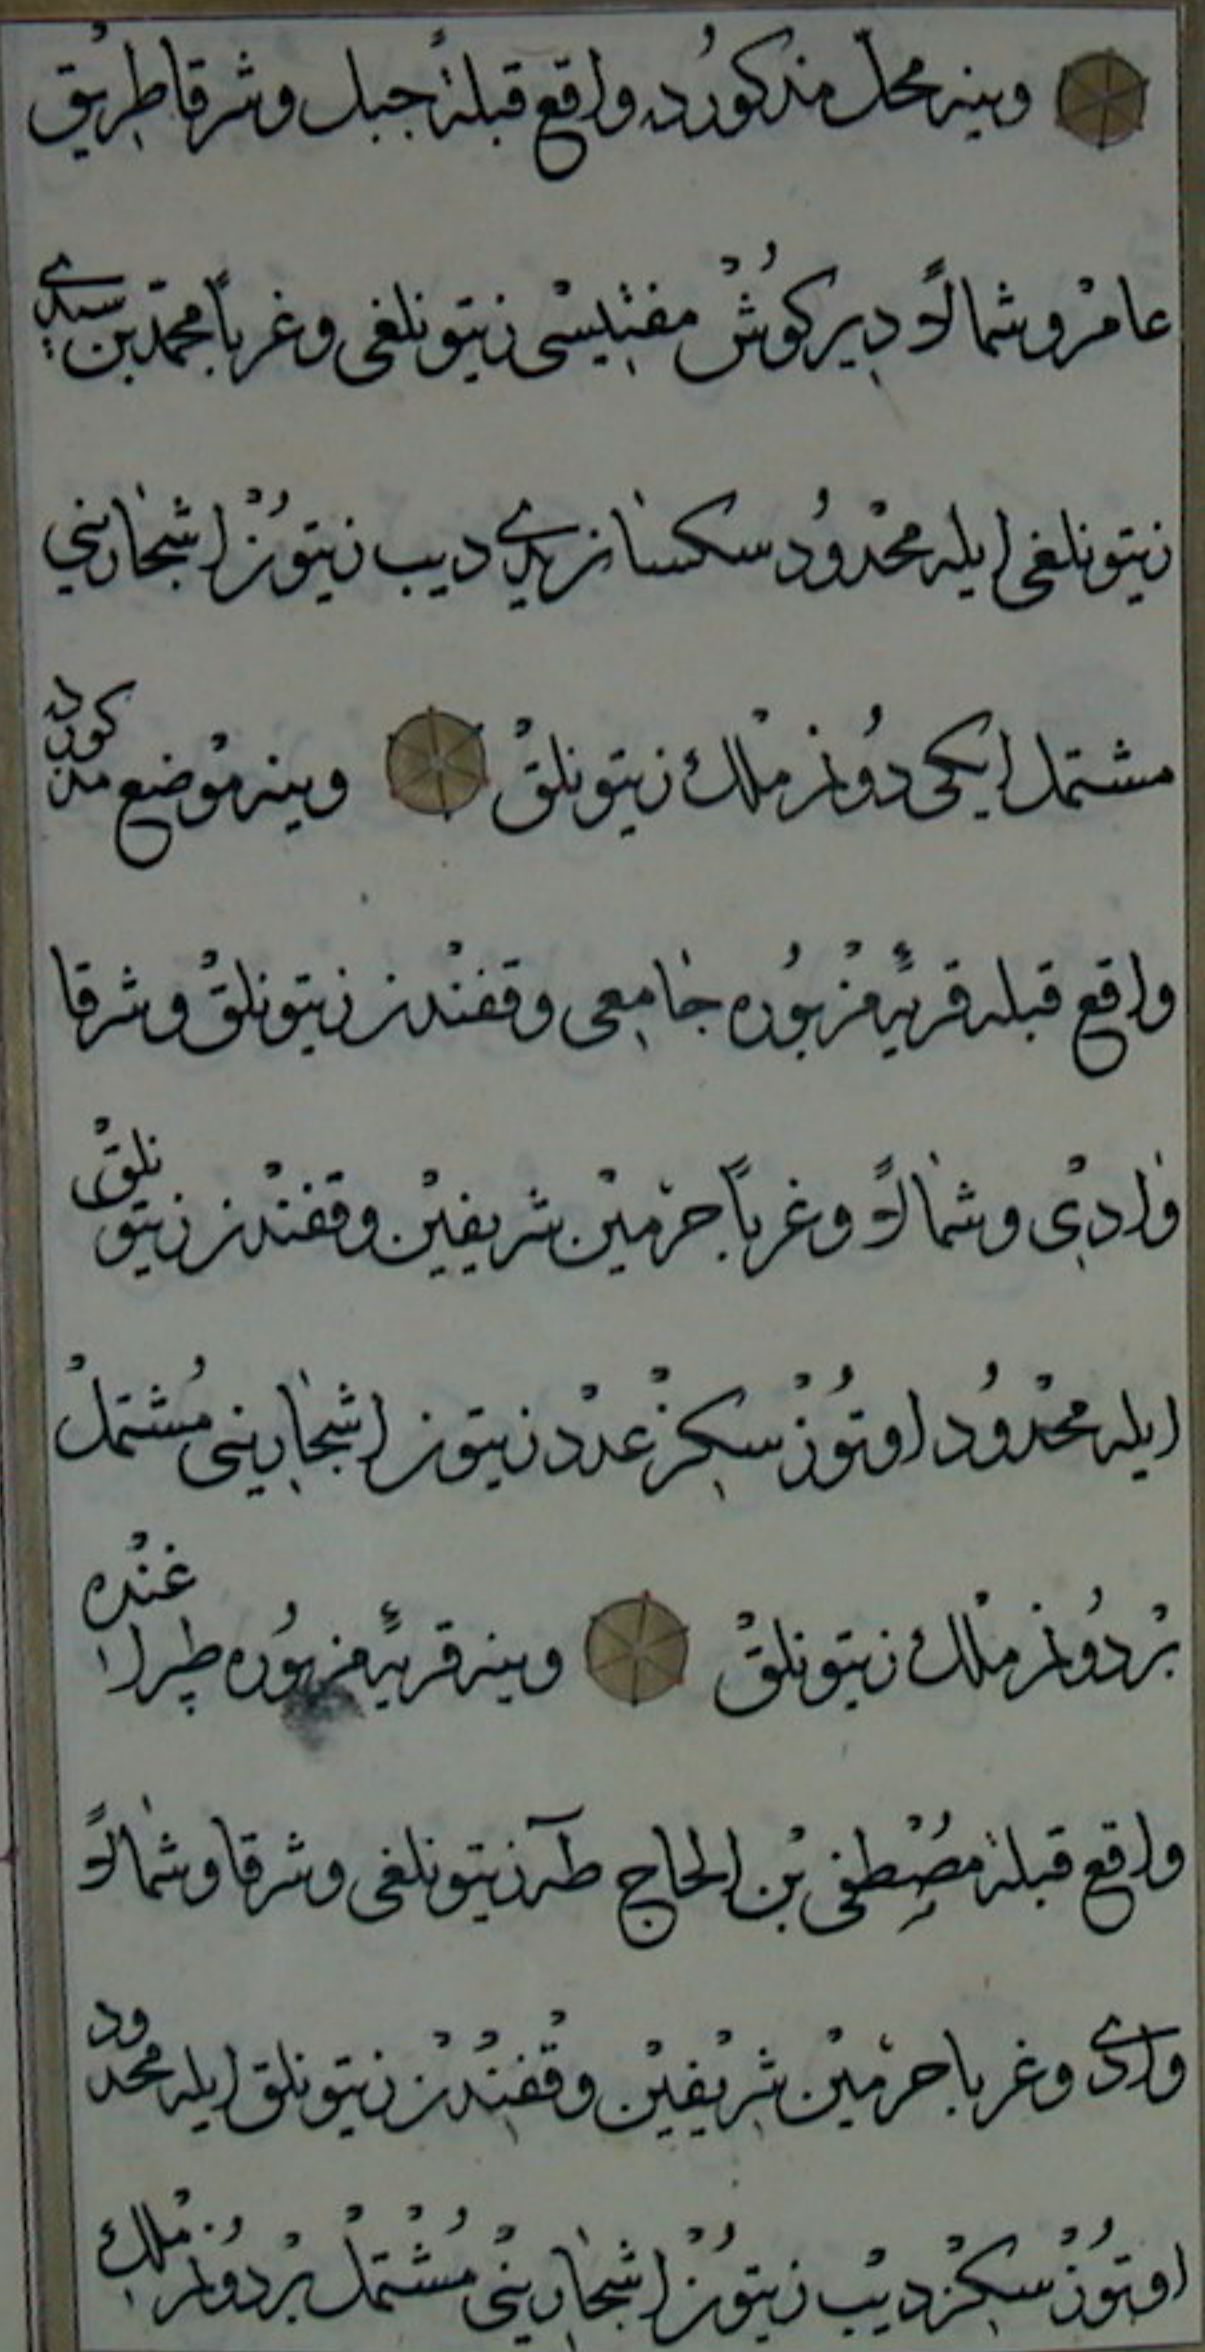 وینه محلّ مذکورده واقع قبلةً جبل وشرقا طریق
عام وشمالاً دیرکوش مفتیسی زیتونلغی وغرباً محمد بن سیدی
زیتونلغی ایله محدود سکسان یدی دیب زیتون اشجارینی
مشتمل ایکی دونم ملك زیتونلق وینه موضع مذکورده
واقع قبله قریهٔ مزبوره جامعی وقفندن زیتونلق وشرقا
وادی وشمالاً وغرباً حرمین شریفین وقفندن زیتونلق
ایله محدود اوتوز سکز عدد زیتون اشجارینی مشتمل
بر دونم ملك زیتونلق وینه قریهٔ مزبوره طپراغنده
واقع قبلةً مصطفی بن الحاج طه زیتونلغی وشرقا وشمالاً
وادی وغربا حرمین شریفین وقفندن زیتونلق ایله محدود
اوتوز سکز دیب زیتون اشجارینی مشتمل بر دونم ملك